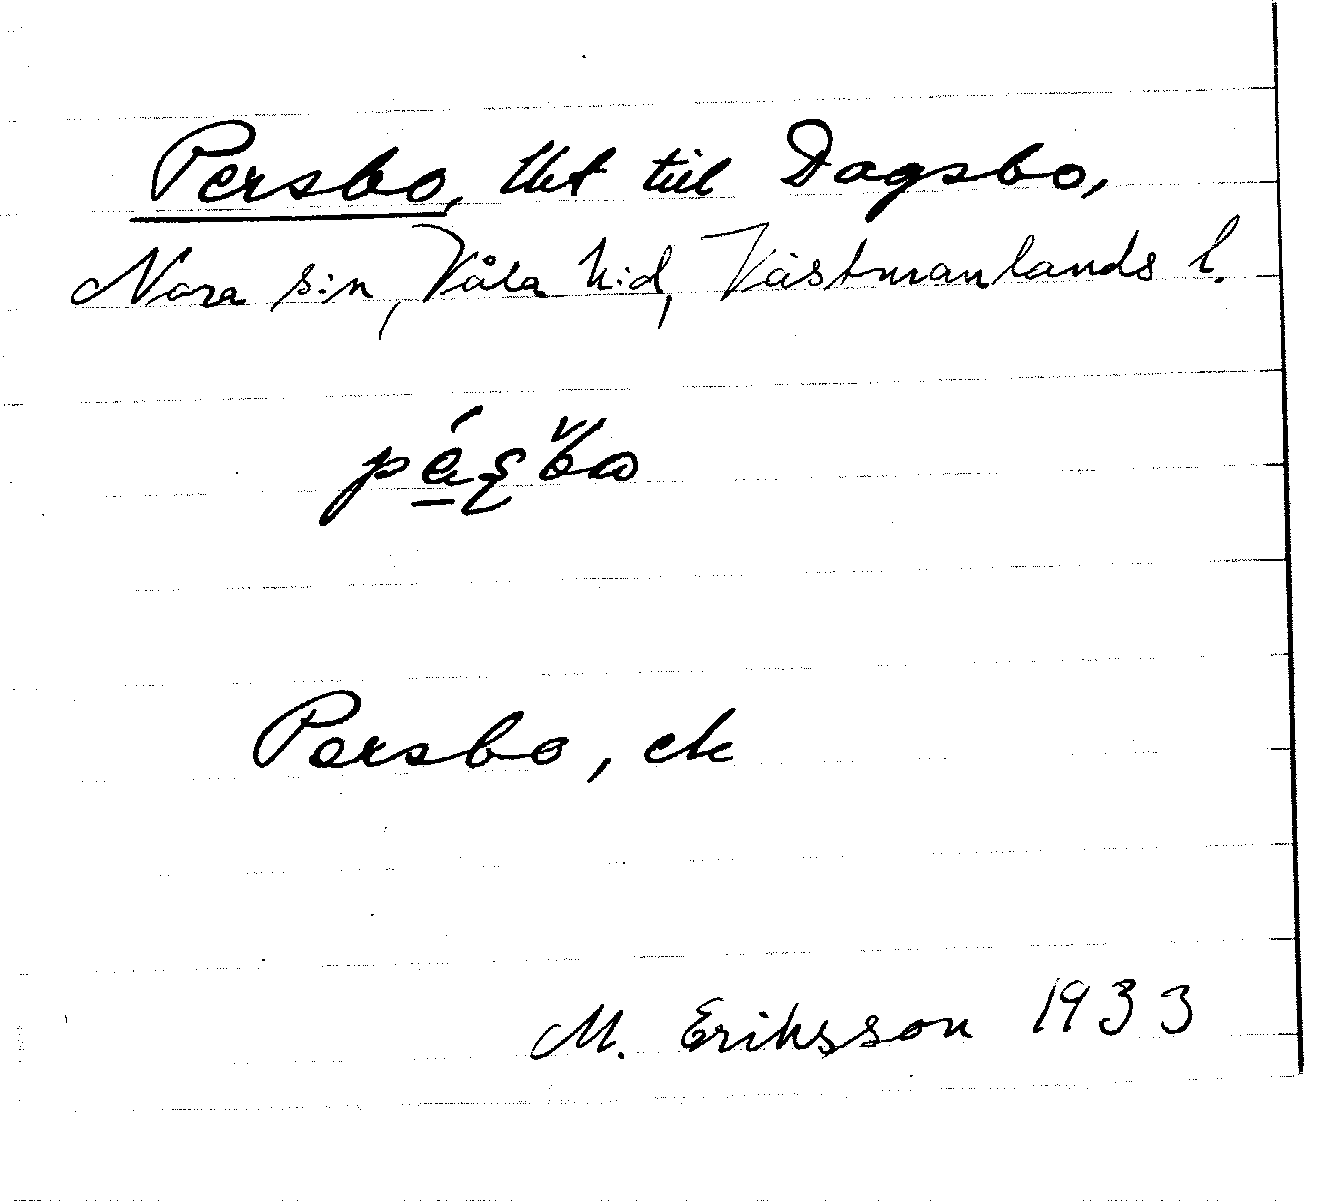 Persbo, tht till Dagsbo,
Nora s:n, Våla h:d, Västmanlands l.
Persbo, ek
M. Eriksson 1933